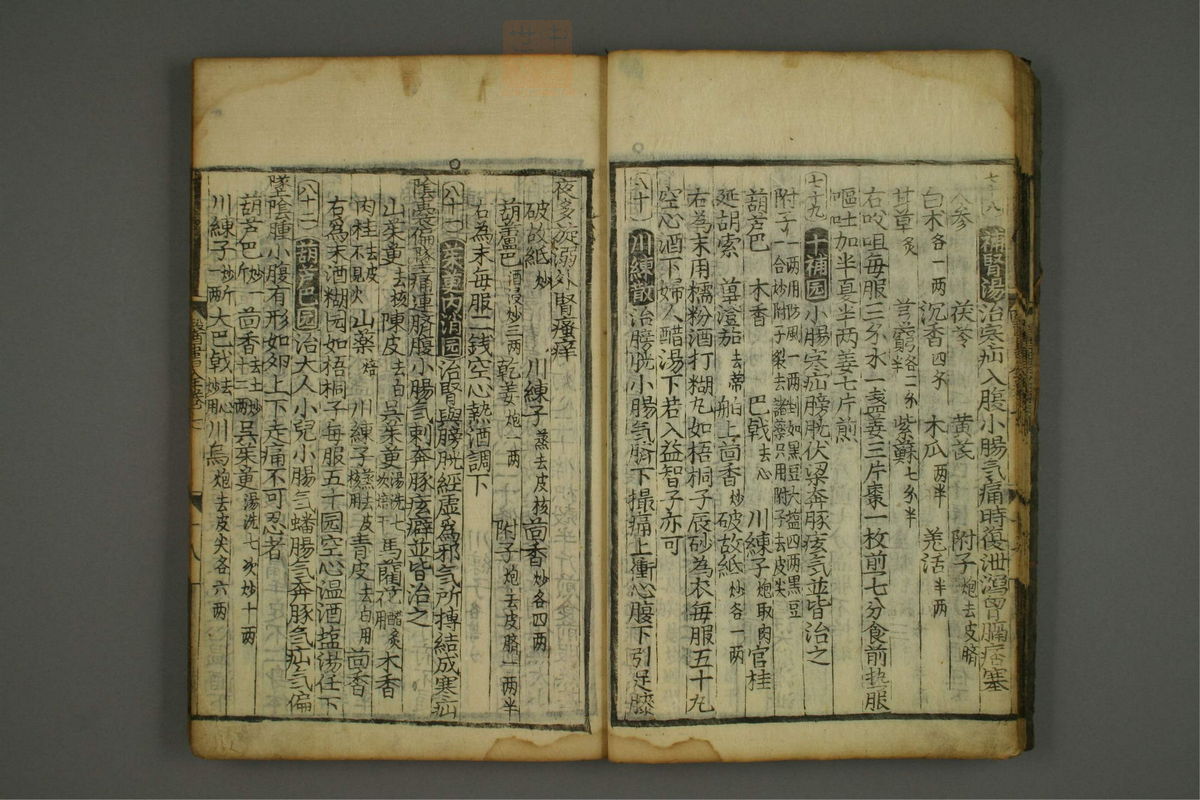 七十八 補腎湯 治寒疝入腹小腸氣痛時復泄瀉胷膈痞塞
人參 茯苓 黃芪 附子炮去皮臍
白朮各一两 沉香四分 木瓜两半 羌活半两
甘草炙 芎藭各二分半 紫蘇七分半
右㕮咀每服三分水一盞姜三片棗一枚煎七分食前热服
嘔吐加半夏半两姜七片煎
七十九 十補园 小腸寒疝膀胱伏梁奔豚痃气並皆治之
附子一两用防風一两剉如黑豆大塩四两黑豆一合炒附子裂去諸藥只用附子去皮尖
葫芦巴 木香 巴戟去心 川練子炮取肉 官桂
延胡索 蓽澄茄去蔕 舶上茴香炒 破故紙炒各一两
右為末用糯粉酒打糊丸如梧桐子辰砂為衣每服五十丸
空心酒下婦人醋湯下若入益智子亦可
八十 川練散 治膀胱小腸气臍下撮痛上衝心腹下引足膝
夜多旋溺外腎瘙痒
破故紙炒 川練子蒸去皮核 茴香炒各四两
葫蘆巴酒浸炒三两 乾姜炮一两 附子炮去皮臍一两半
右為末每服二錢空心熱酒調下
八十一 茱萸内消园 治腎與膀胱經虛為邪气所摶結成寒疝
陰囊偏墜痛連臍腹小腸气刺奔豚痃癖並皆治之
山茱萸去核 陳皮去白 吳茱萸湯洗七次焙干 馬藺花醋炙 木香
肉桂去皮不見火 山藥焙 川練子蒸去皮核用 青皮去白用 茴香
右為末酒糊园如梧桐子每服五十园空心温酒塩湯任下
八十二 葫芦巴园 治大人小兒小腸气蟠腸气奔豚气疝气偏
墜陰腫小腹有形如卵上下走痛不可忍者
葫芦巴炒一斤 茴香去土炒十二两 吳茱萸湯洗七次炒十两
川練子炒一斤二两 大巴戟去心炒用 川烏炮去皮尖各六两